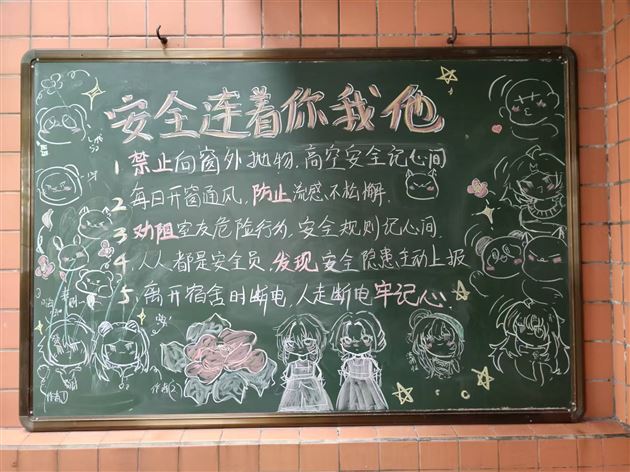 安全连着你我他
1 禁止向窗外抛物,高空安全记心间
2 每日开窗通风,防止流感不松懈.
3 劝阻室友危险行为,安全规则记心间.
4、人人都是安全员,发现安全隐患主动上报
5、离开宿舍时断电,人走断电牢记心!